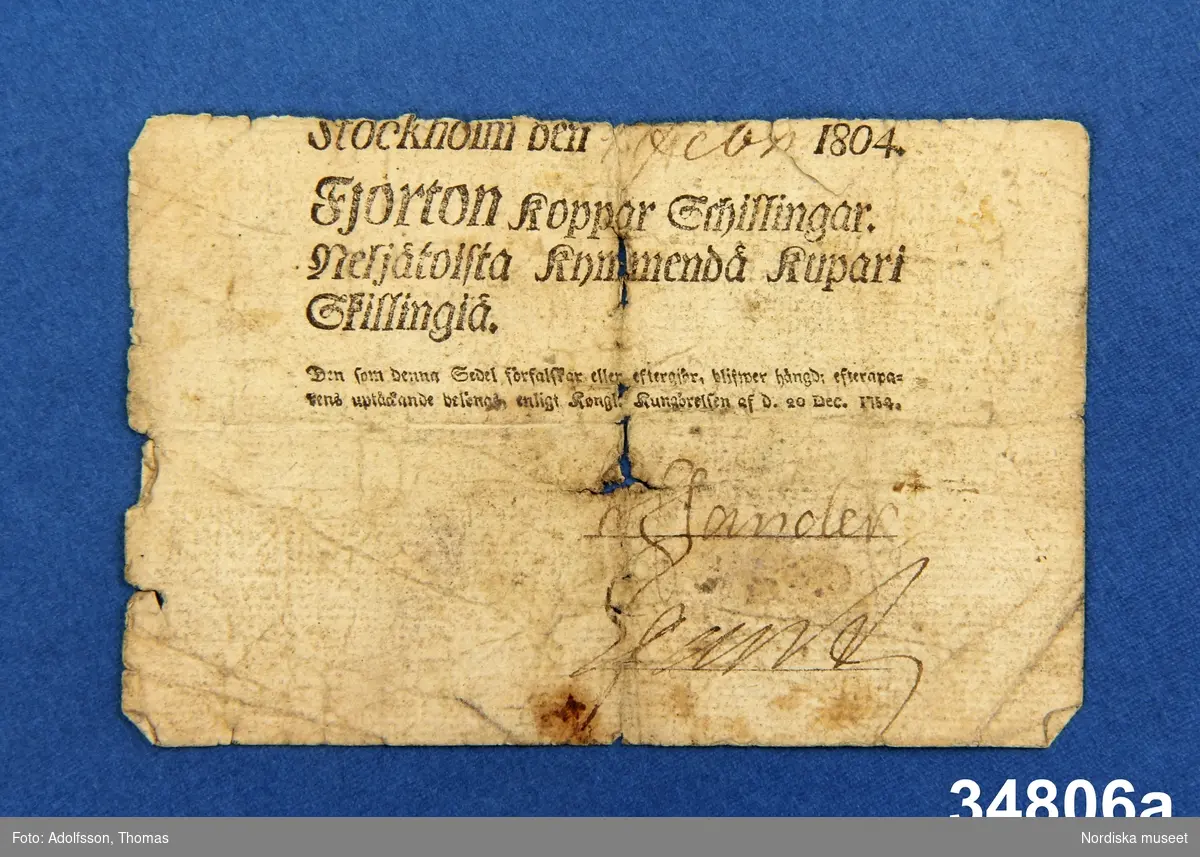 Stockholm den 1804.
Fjorton Koppar Schillingar.
Neljätoista Kymmendä Kupari
Skillingiä.
Den som denna Sedel förfalskar eller eftergiör, blifwer hängd; efterapa=
rens uptäckande belönas, enligt Kongl. Kungörelsen af d. 20 Dec. 1754.
Sandler
34806a
Foto: Adolfsson, Thomas
Nordiska museet